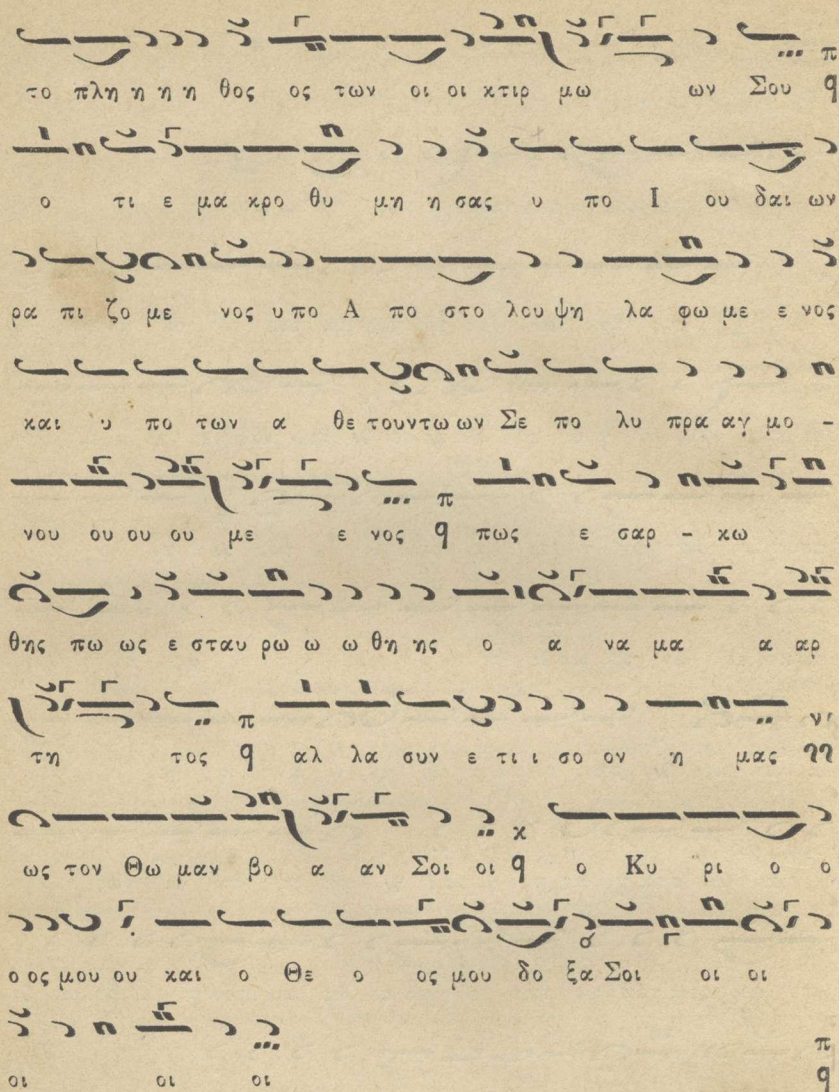 το πλη η η η θος ος των οι οι κτιρ μω ων Σου
ο τι ε μα κρο θυ μη η σας υ πο Ι ου δαι ων
ρα πι ζο με νος υ πο Α πο στο λου ψη λα φω με ε νος
και υ πο των α θε τουντω ων Σε πο λυ πρα αγ μο -
νου ου ου ου με ε νος πως ε σαρ - κω
θης πω ως ε σταυ ρω ω ω θη ης ο α να μα α αρ
τη τος αλ λα συν ε τι ι σο ον η μας
ως τον Θω μαν βο α αν Σοι οι ο Κυ ρι ο ο
ο ος μου ου και ο Θε ο ος μου δο ξα Σοι οι οι
οι οι οι